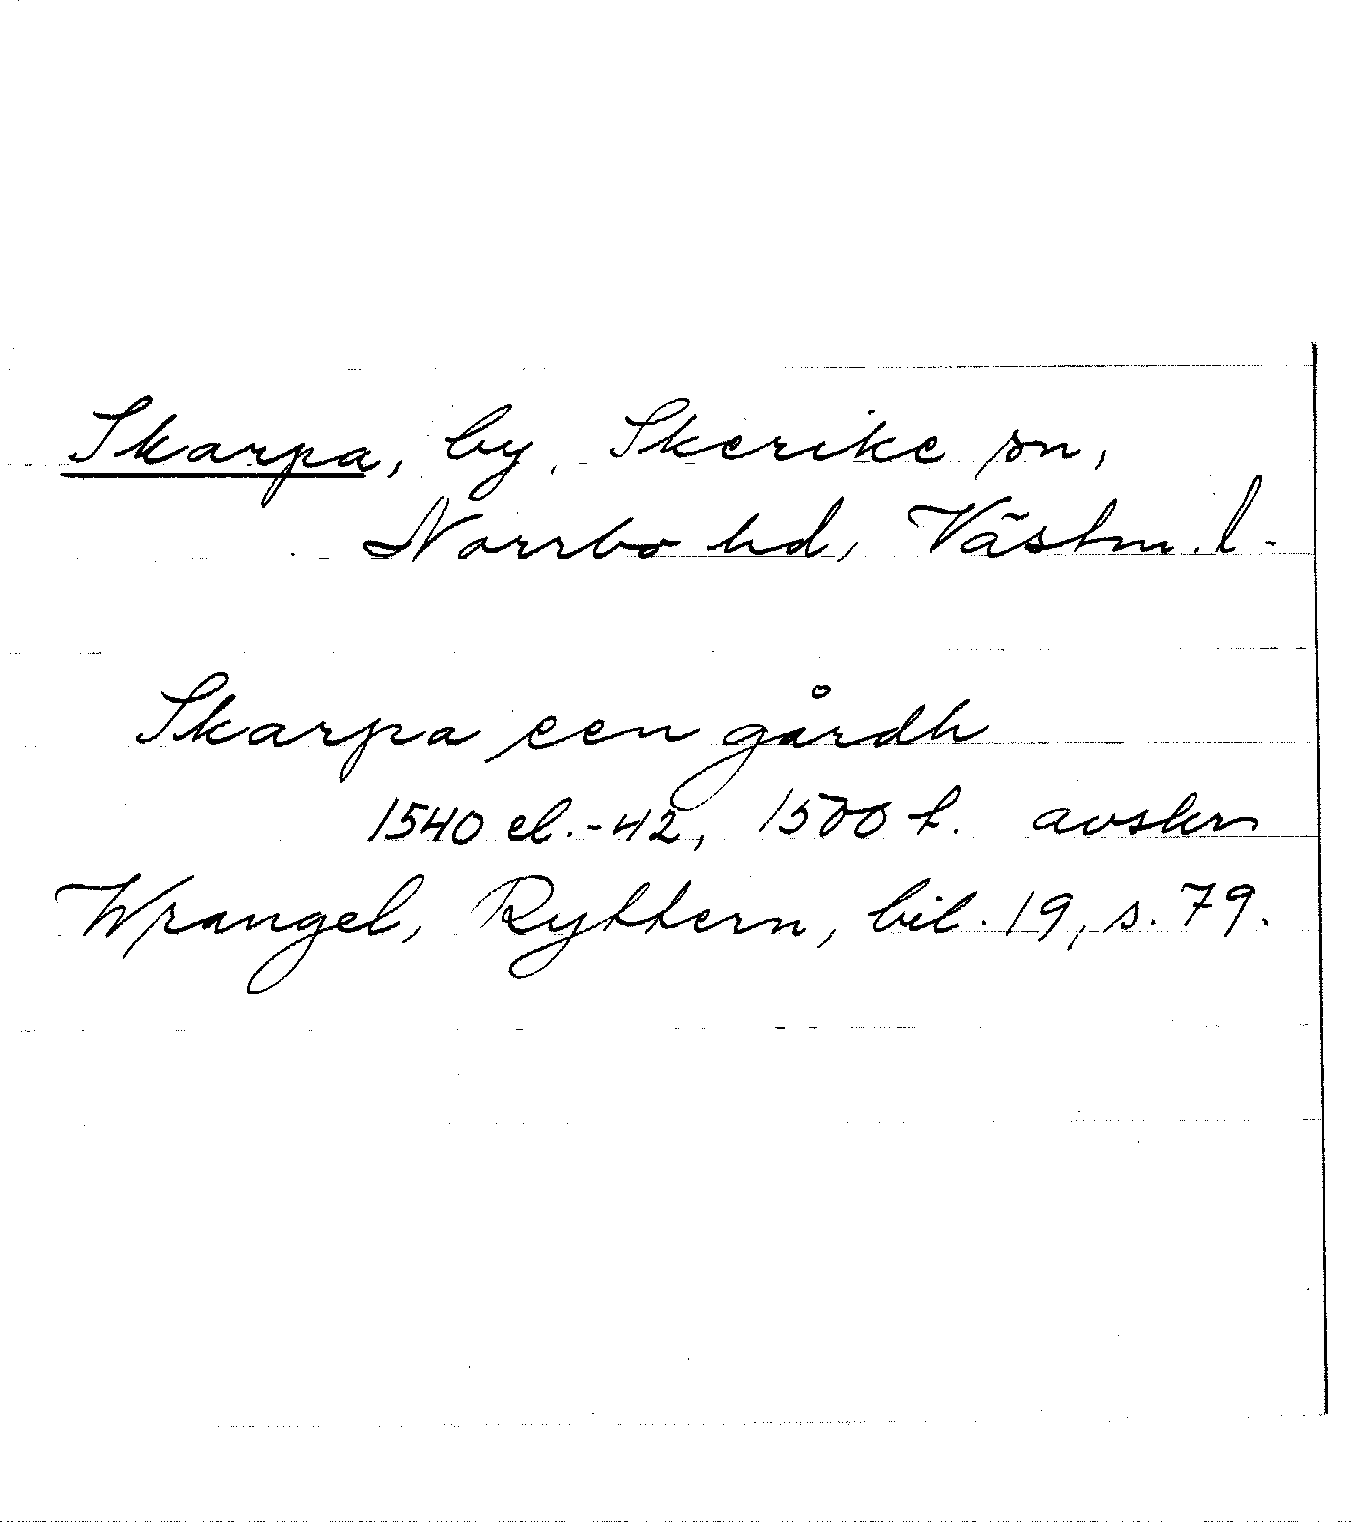 Skarpa, by, Skerike sn,
Norrbo hd, Västm. l.
Skarpa een gårdh
1540 el. -42, 1500 t. avskr
Wrangel, Ryttern, bil. 19, s. 79.